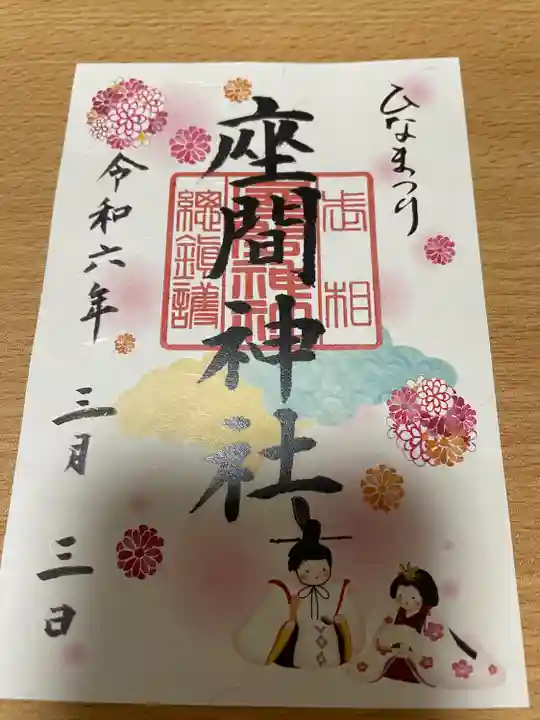 ひなまつり
座間神社
相武
座間神社
總鎮護
令和六年
三月
三日